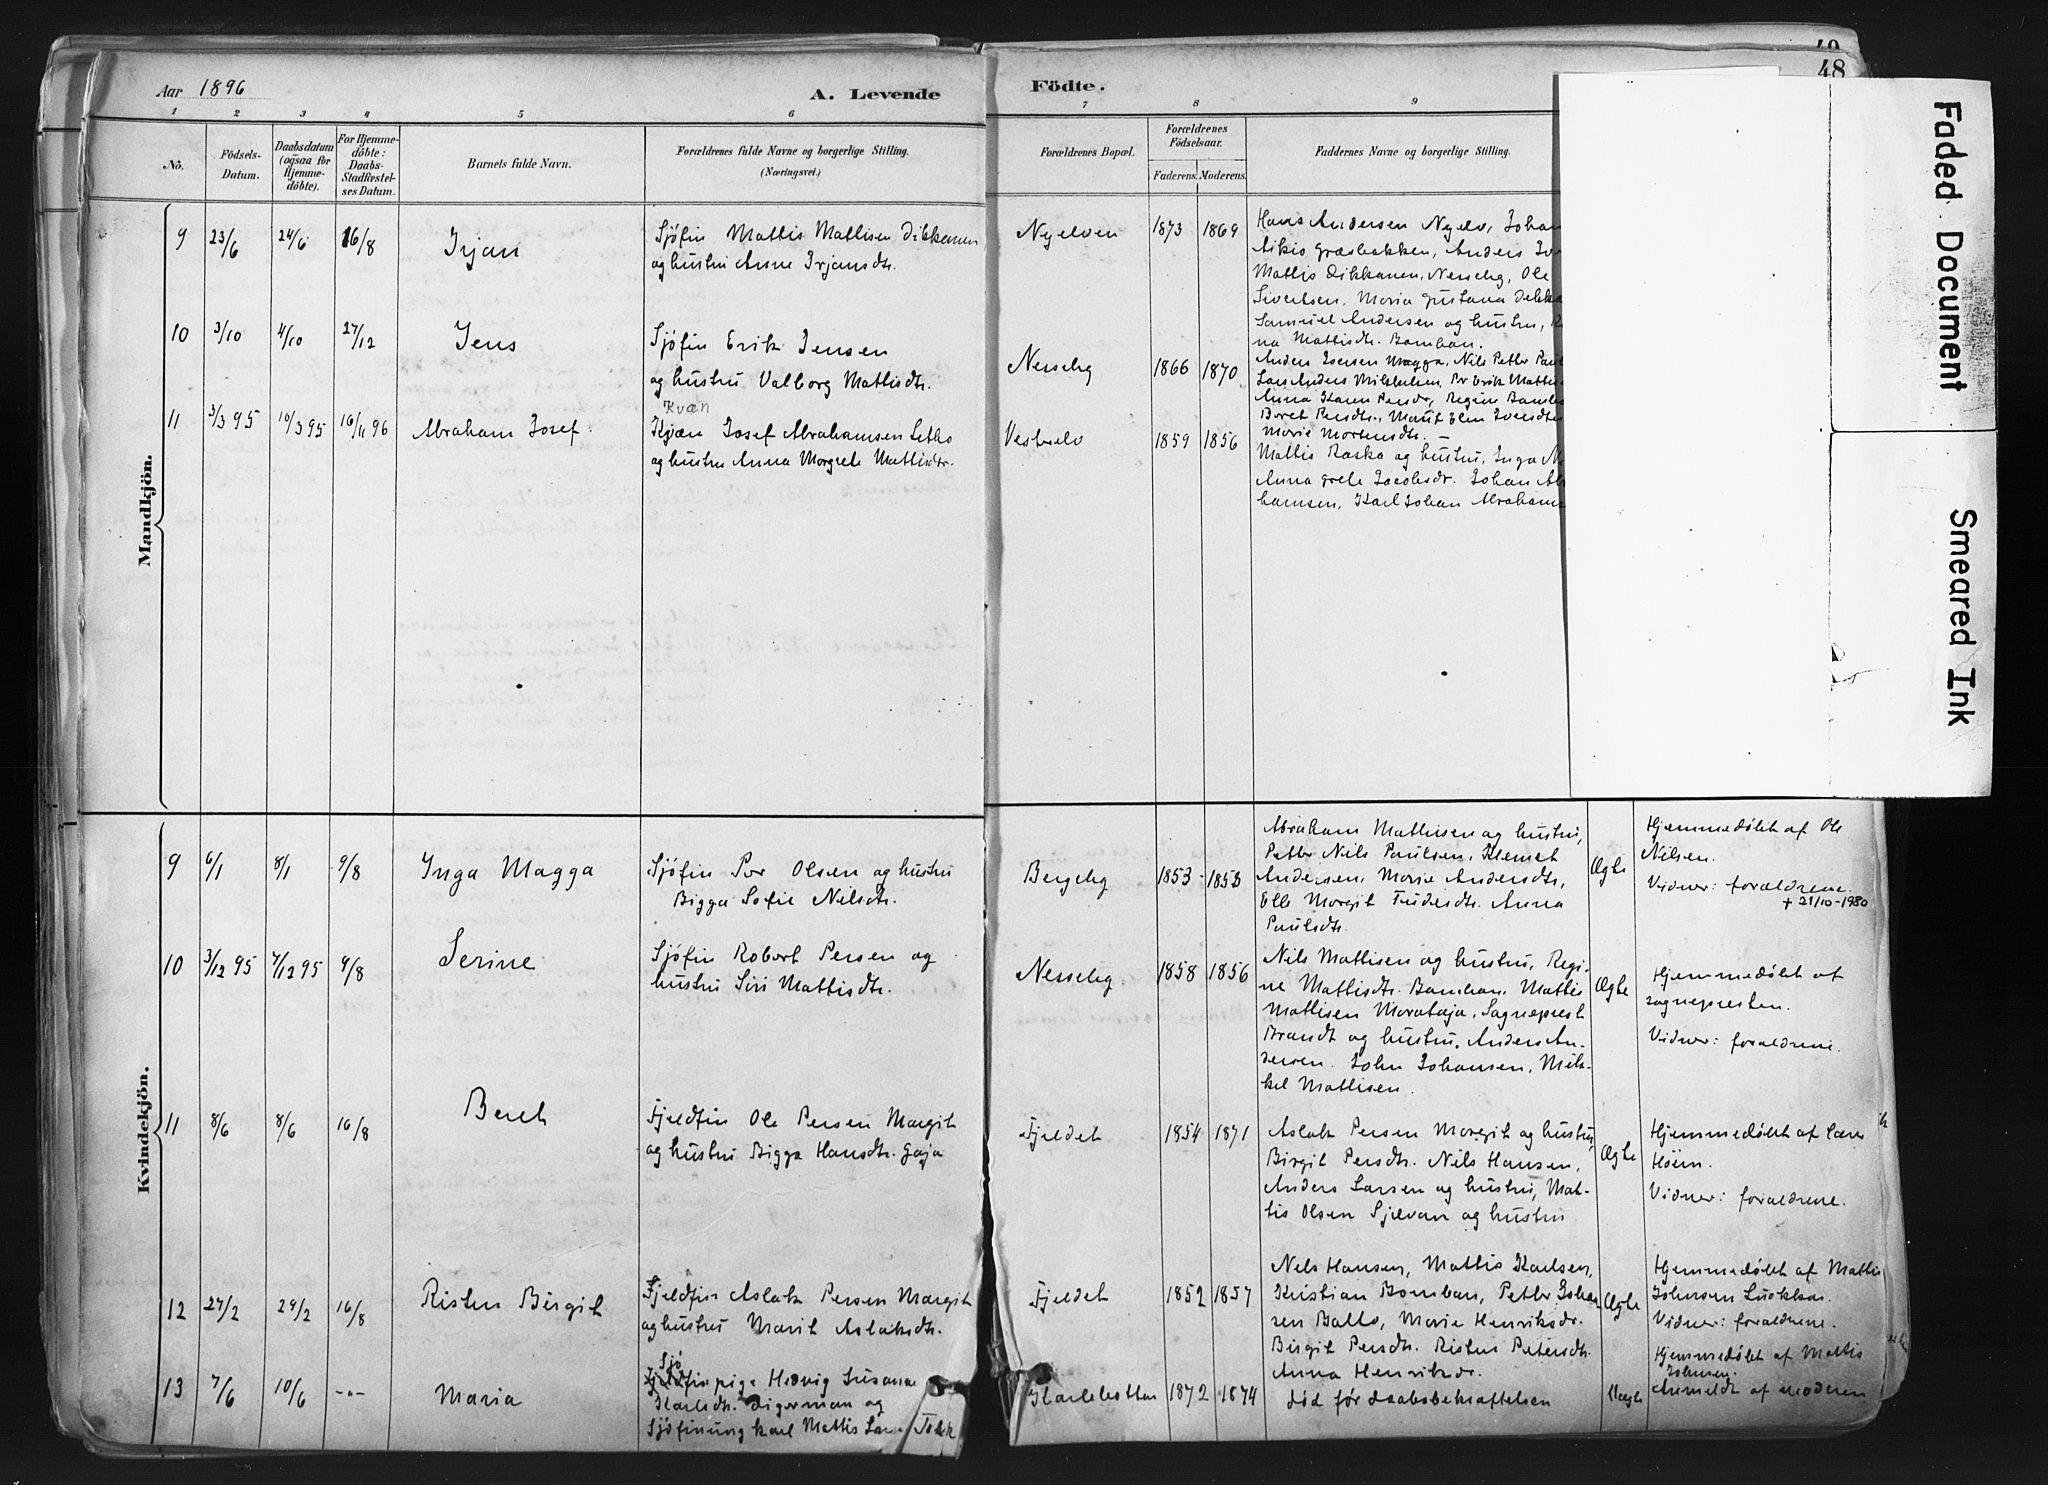 Aar 1896
A. Levende Födte.
48
1 2 3 4 5 6 7 8 9
Nö.
Födsels-Datum.
Daabsdatum (ogsaa for Hjemme-döbte).
For Hjemme-döbte: Daabs-Stadfæstel-ses Datum.
Barnets fulde Navn.
Forældrenes fulde Navne og borgerlige Stilling.
(Næringsvei.)
Forældrenes Bopæl.
Forældrenes Födselsaar.
Faderens. Moderens.
Faddernes Navne og borgerlige Stilling.
Faded Document
Smeared Ink
Mandkjön.
9 23/6 24/6 16/8 Irjan
Sjøfin Mattis Mattisen Dikkanen
og hustru Anne Irjansdtr.
Nyelven 1873 1869
Hans Andersen Nyelv, Johan
Aikio Græsbakken, Anders
Mattis Dikkanen, Nesseby, Ole
Sivertsen, Maria
Samuel Andersen og hustru,
na Mattisdtr. Bomban.
10 3/10 4/10 27/12 Jens
Sjøfin Erik Jensen
og hustru Valborg Mattisdtr.
Nesseby 1866 1870
Anders Iversen Magga, Nils Petter
Lars Anders Mikkelsen, Per Erik
Anna Karen Persdr, Regine
Beret Persdtr., Marit Elen Iversdtr
Marie Mortensdtr. —
11 3/3 95 10/3 95 16/11 96 Abraham Josef.
Kvæn
Kvæn Josef Abrahamsen
og hustru Anna Margrete Mattisdr.
Vesterelv 1859 1856
Mattis Raska og hustru, Inga
Anna Grete Jacobsdr. Johan
hamsen, Karl Johan
Kvindekjön.
9 6/1 8/1 9/8 Inga Magga
Sjøfin Per Olsen og hustru
Bigga Sofie Nilsdtr.
Bergeby 1853 1853
Abraham Mathisen og hustru,
Petter Nils Paulsen, Klemet
Andersen, Marie Andersdtr,
Elle Margit Anna
Paulsdtr.
Ægte
Hjemmedøbt af Ole
Nilsen.
Vidner: forældrene.
+ 21/10-1980
10 3/12 95 7/12 95 9/8 Serine
Sjøfin Robert Persen og
hustru Siri Mattisdtr.
Nesseby. 1858 1856
Nils Mattisen og hustru, Regi-
ne Mattisdtr. Bomban, Mattis
Mattisen Sognepræst
Brandt og hustru, Anders An-
dersen. John Johansen, Mik-
kel Mattisen.
Ægte
Hjemmedøbt af
sognepresten.
Vidner: forældrene.
11 8/6 8/6 16/8 Beret
Fjeldfin Ole Persen Margit
og hustru Bigga Hansdtr. Gaja
Fjeldet 1854 1871
Aslak Persen Margit og hustru,
Birgit Persdtr. Nils Hansen,
Anders Larsen og hustru, Mat-
tis Olsen og hustru
Ægte
Hjemmedøbt af
Vidner: forældrene.
12 27/2 29/2 16/8 Risten Birgit
Fjeldfin Aslak Persen Margit
og hustru Marit Aslaksdtr.
Fjeldet 1852 1857
Nils Hansen, Mattis Karlsen,
Kristian Bomban, Petter Johan
sen Ballo, Marie Henriksdr.
Birgit Persdtr. Risten Petersdtr.
Anna Henriksdr.
Ægte
Hjemmedøbt af Mattis
Johnsen
Vidner: forældrene.
13 7/6 10/6 -"- Maria
Sjø
Fjeldfinpige Hedvig Susanne
Karlsdtr. Digerman og
Sjøfinung karl Mattis
Karlebotten 1872 1874
død før daabsbekræftelsen
Uægte
Hjemmedøbt af Mattis
Johnsen.
Anmeldt af moderen